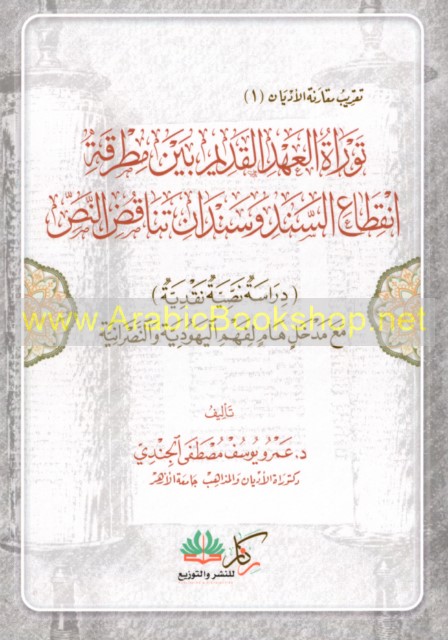 تقريب مقارنة الأديان (١)
تَوْرَاةُ العَهْدِ القَدِيمِ بَيْنَ مِطْرَقَةِ
انْقِطَاعِ السَّنَدِ وَسَنْدَانِ تَنَاقُضِ النَّصِّ
(دِرَاسَةٌ نَصِّيَّةٌ نَقْدِيَّةٌ)
www.ArabicBookshop.net
مَعَ مَدْخَلٍ هَامٍ لِفَهْمِ اليَهُودِيَّةِ وَالنَّصْرَانِيَّةِ
تَأليفُ
د. عَمْرو يُوسُف مُصْطَفَى الجُنْدِي
دكتوراة الأديان والمذاهب جامعة الأزهر
ركاز
للنشر والتوزيع